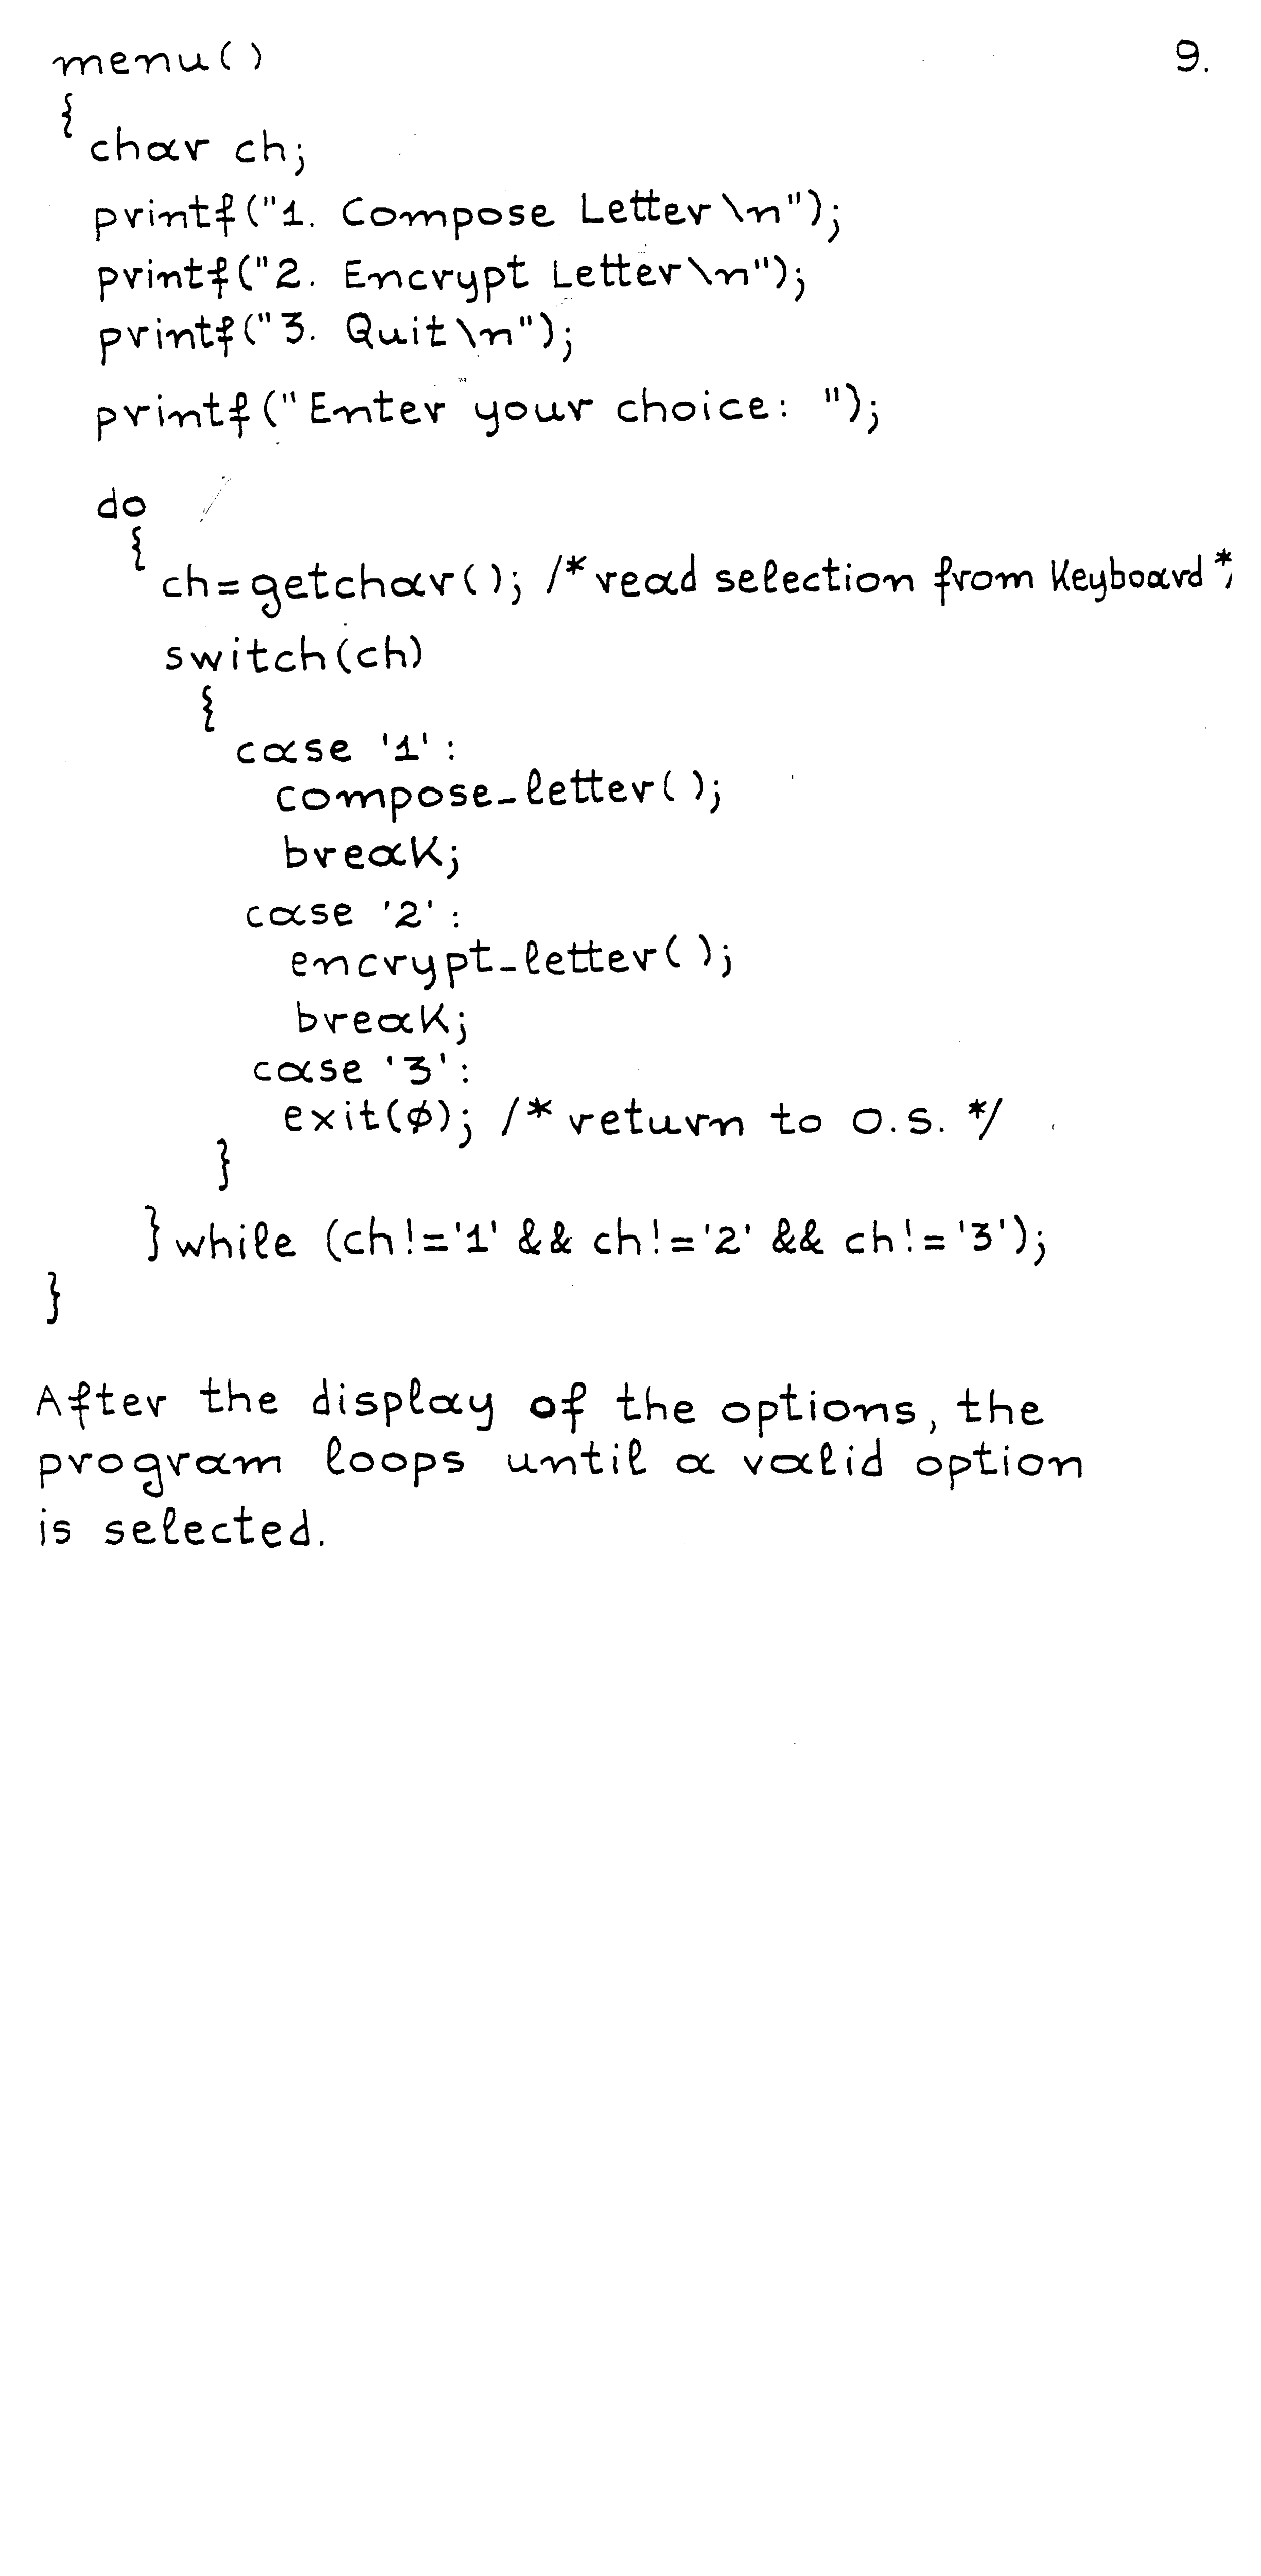 menu() 9.
{
char ch;
printf("1. Compose Letter\n");
printf("2. Encrypt Letter\n");
printf("3. Quit\n");
printf("Enter your choice: ");
do
{
ch=getchar(); /* read selection from Keyboard *
switch(ch)
{
case '1':
compose_letter();
break;
case '2':
encrypt_letter();
break;
case '3':
exit(ø); /* return to o.s. */
}
}while (ch!='1' && ch!='2' && ch!='3');
}
After the display of the options, the
program loops until a valid option
is selected.